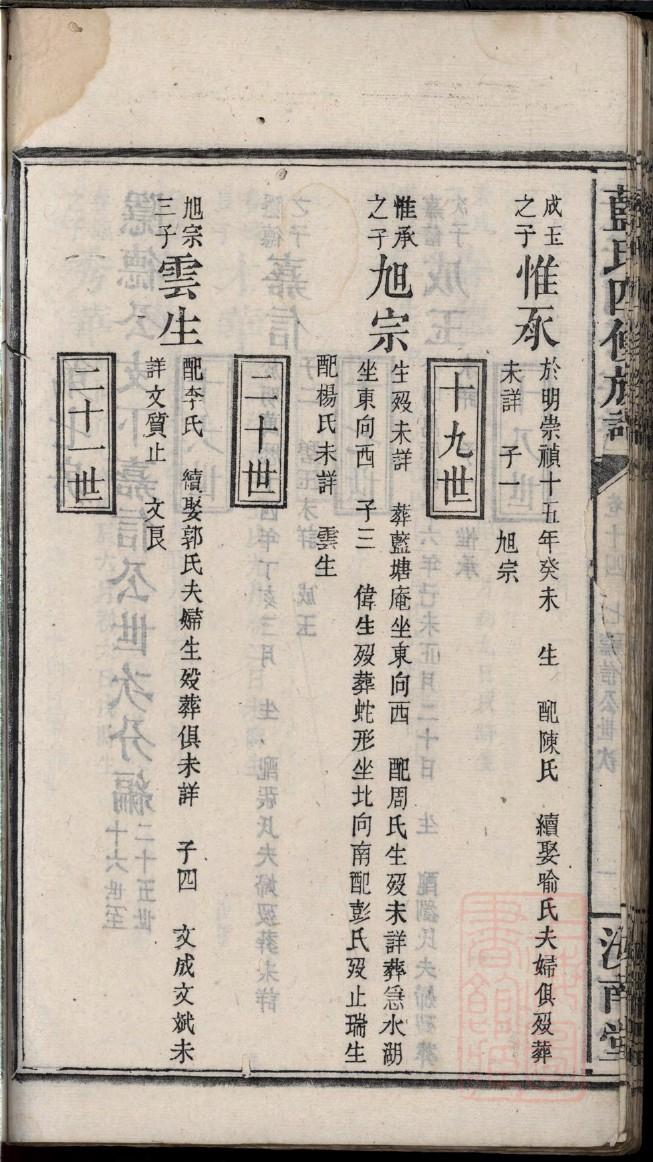 藍氏四修族譜
汝南堂
成玉之子惟承
於明崇禎十五年癸未 生 配陳氏 續娶喻氏夫婦俱歿葬
未詳 子一 旭宗
十九世
惟承之子旭宗
生歿未詳 葬藍塘庵坐東向西 配周氏生歿未詳葬急水湖
坐東向西 子三 偉生歿葬蛇形坐北向南配彭氏歿止瑞生
配楊氏未詳 雲生
二十世
旭宗三子雲生
配李氏 續娶郭氏夫婦生歿葬俱未詳 子四 文成文斌未
詳文質止 文良
二十一世